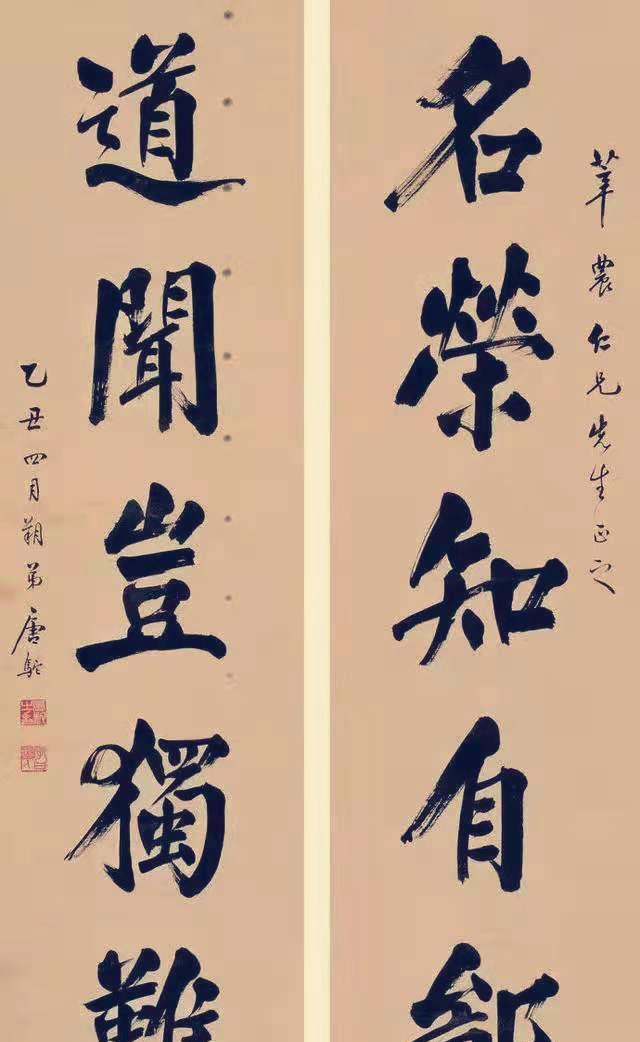 莘農仁兄先生正之
名榮知自
道聞豈獨難
乙丑四月朔弟唐駝